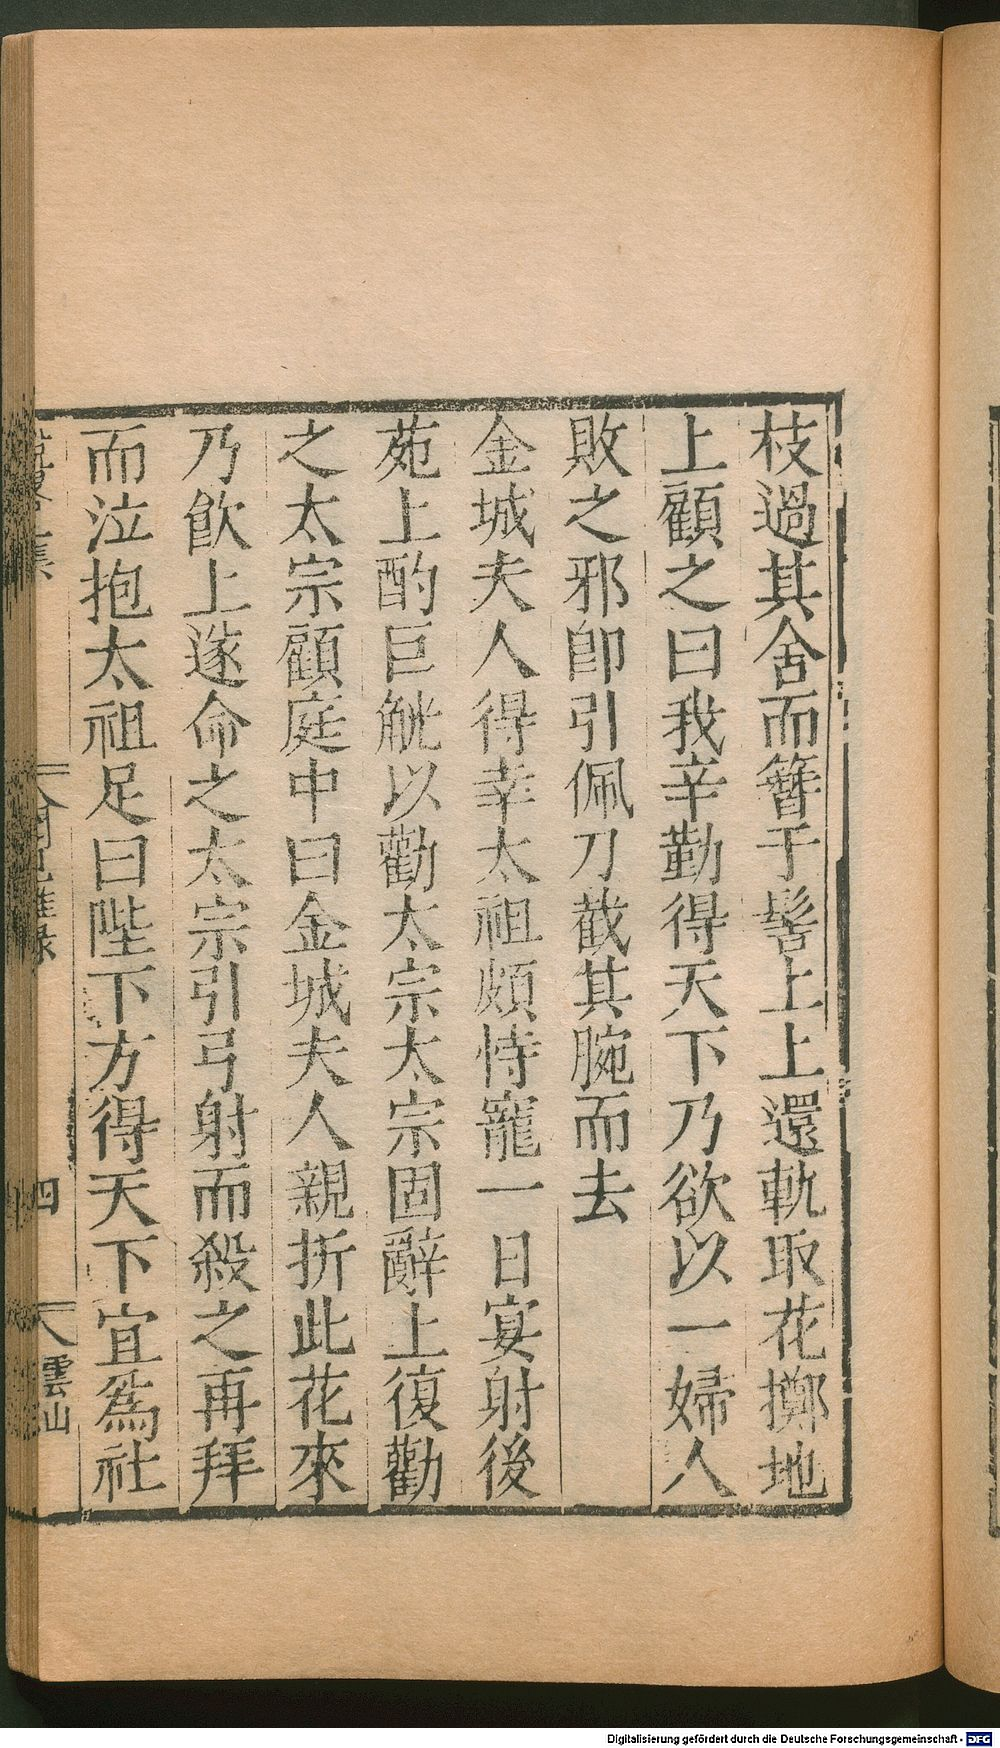 枝過其舍而簪于髻上上還輒取花擲地
上顧之曰我辛勤得天下乃欲以一婦人
敗之邪卽引佩刀截其腕而去
金城夫人得幸太祖頗恃寵一日宴射後
苑上酌巨觥以勸太宗太宗固辭上復勸
之太宗顧庭中曰金城夫人親折此花來
乃飮上遂命之太宗引弓射而殺之再拜
而泣抱太祖足曰陛下方得天下宜爲社
聞見雜錄
四
雲山
Digitalisierung gefördert durch die Deutsche Forschungsgemeinschaft - DFG